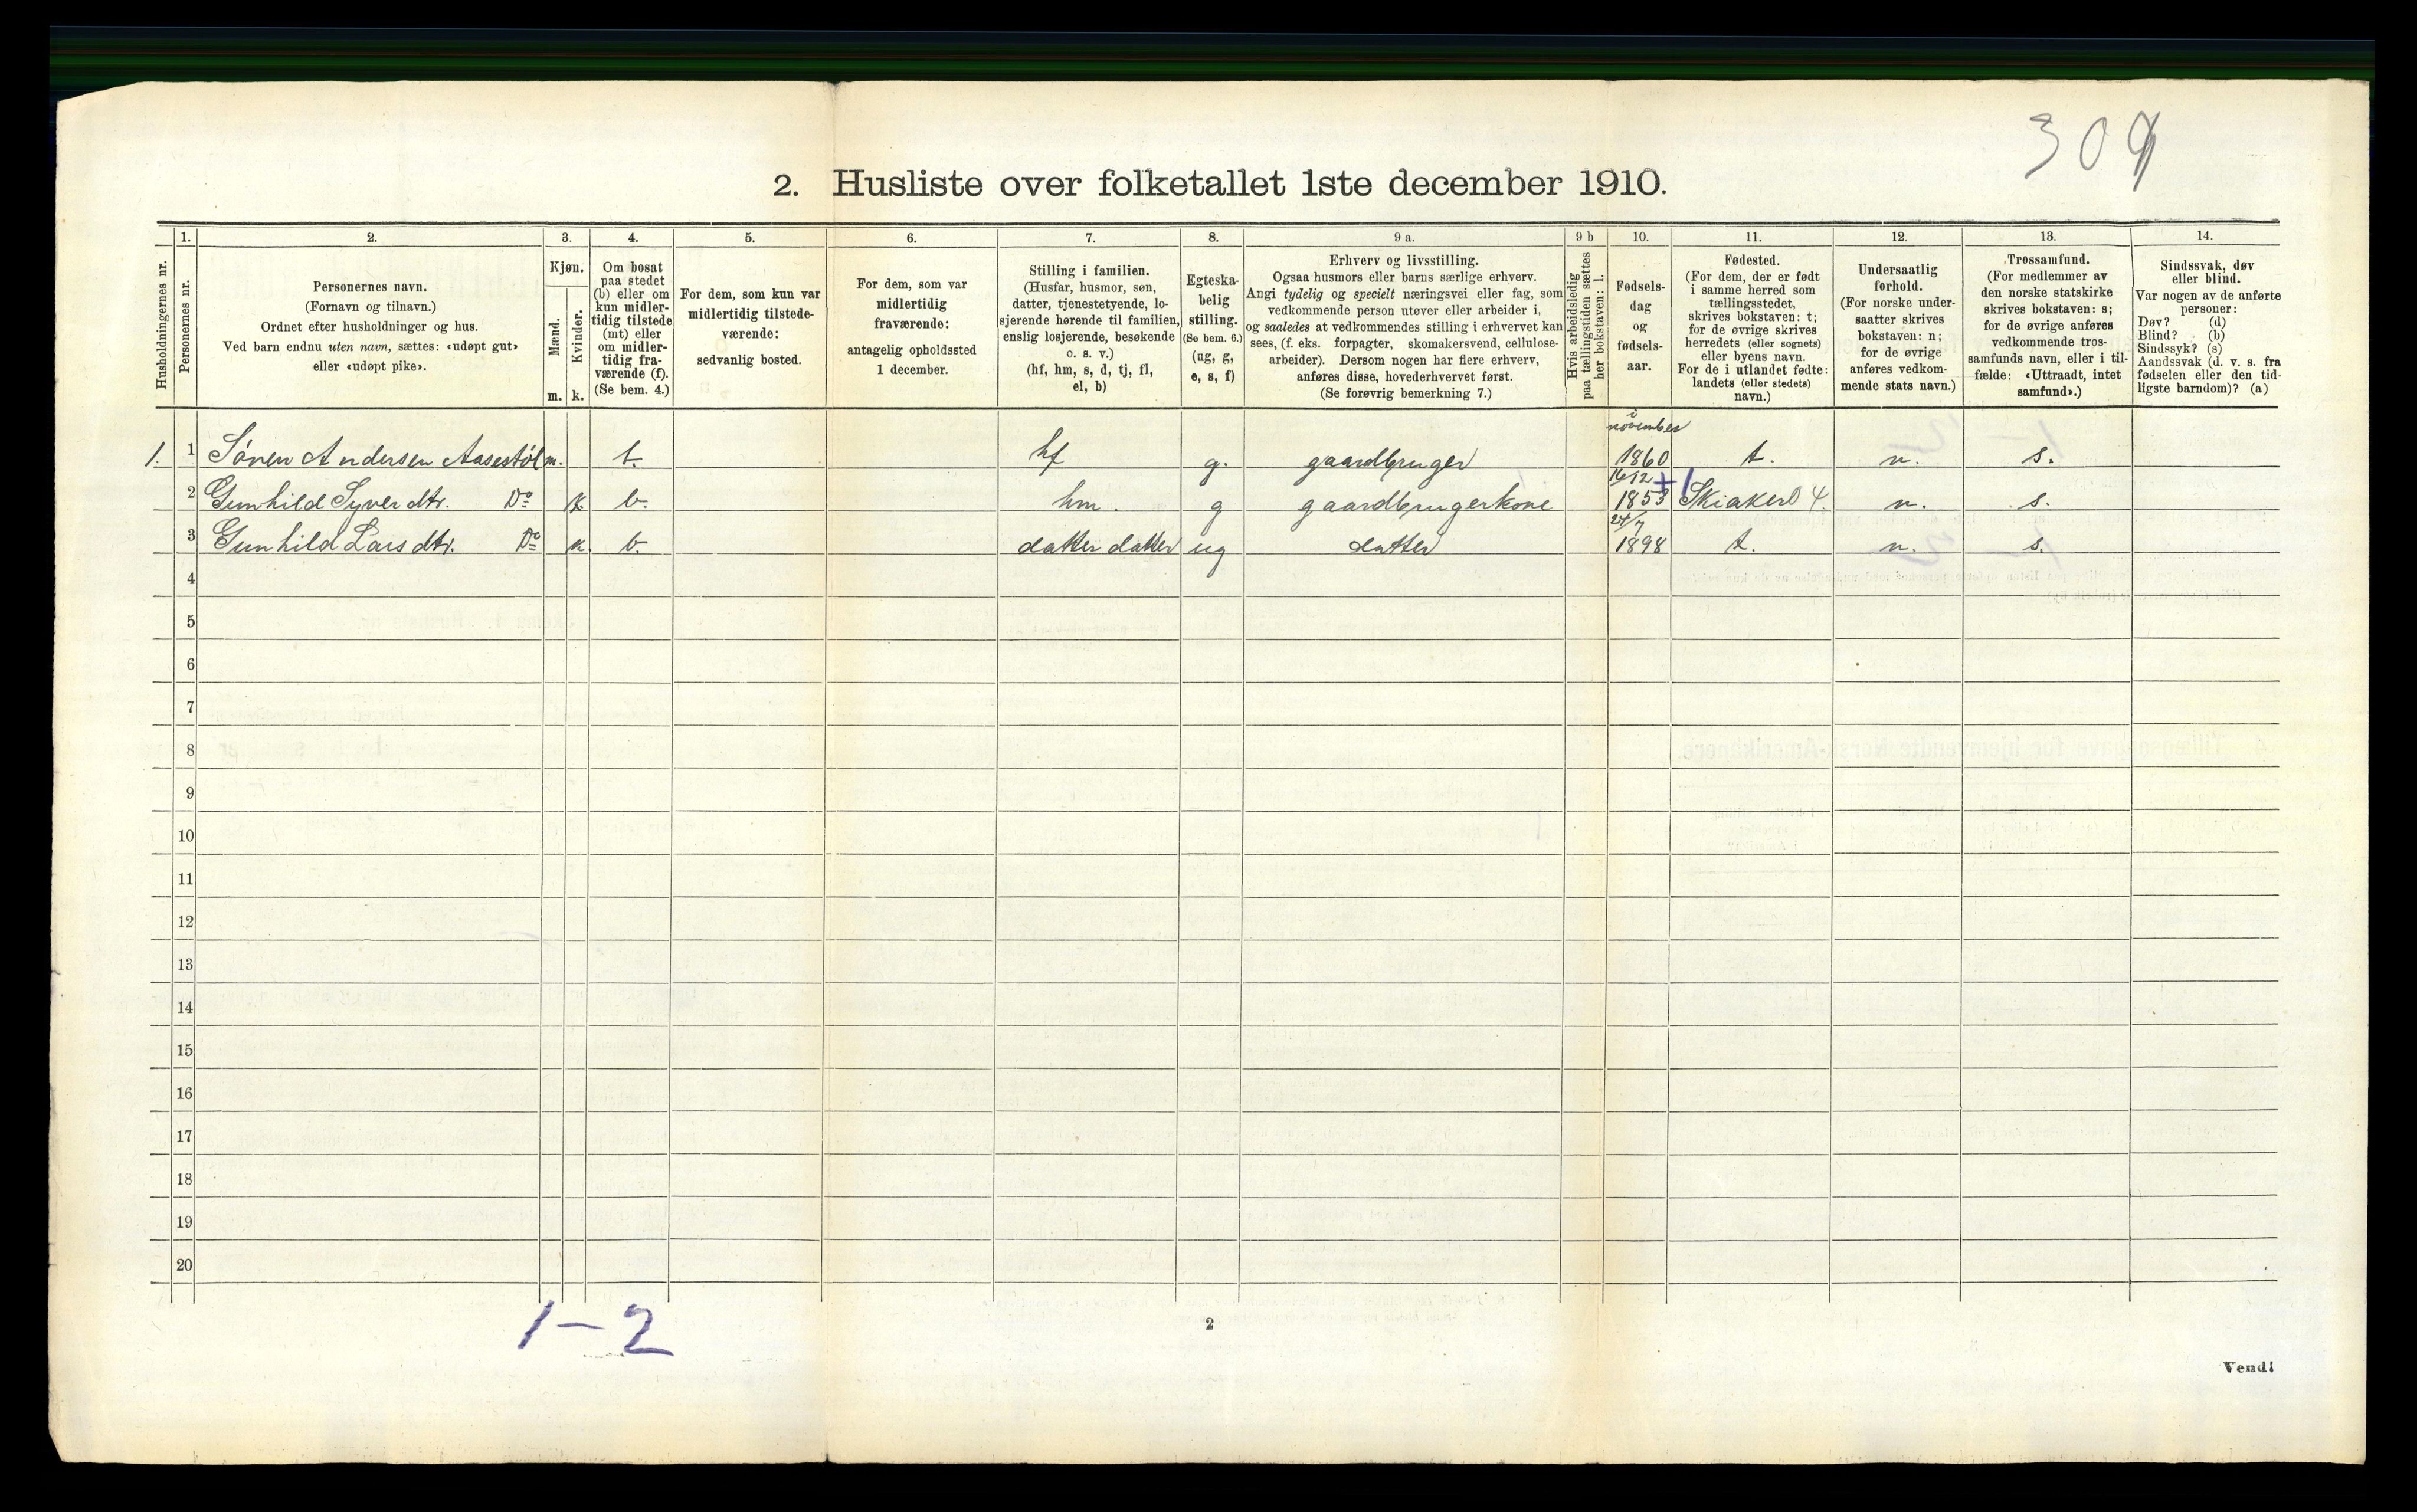 309
2. Husliste over folketallet 1ste december 1910.
Husholdningernes nr.
1.
Personernes nr.
2.
Personernes navn.
(Fornavn og tilnavn.)
Ordnet efter husholdninger og hus.
Ved barn endnu uten navn, sættes: «udøpt gut»
eller «udøpt pike».
3.
Kjøn.
Mænd.
Kvinder.
m. k.
4.
Om bosat
paa stedet
(b) eller om
kun midler-
tidig tilstede
(mt) eller
om midler-
tidig fra-
værende (f).
(Se bem. 4.)
5.
For dem, som kun var
midlertidig tilstede-
værende:
sedvanlig bosted.
6.
For dem, som var
midlertidig
fraværende:
antagelig opholdssted
1 december.
7.
Stilling i familien.
(Husfar, husmor, søn,
datter, tjenestetyende, lo-
sjerende hørende til familien,
enslig losjerende, besøkende
o. s. v.)
(hf, hm, s, d, tj, fl,
el, b)
8.
Egteska-
belig
stilling.
(Se bem. 6.)
(ug, g,
e, s, f)
9 a.
Erhverv og livsstilling.
Ogsaa husmors eller barns særlige erhverv.
Angi tydelig og specielt næringsvei eller fag, som
vedkommende person utøver eller arbeider i,
og saaledes at vedkommendes stilling i erhvervet kan
sees, (f. eks. forpagter, skomakersvend, cellulose-
arbeider). Dersom nogen har flere erhverv,
anføres disse, hovederhvervet først.
(Se forøvrig bemerkning 7.)
9 b
Hvis arbeidsledig
paa tællingstiden sættes
her bokstaven: l.
10.
Fødsels-
dag
og
fødsels-
aar.
11.
Fødested.
(For dem, der er født
i samme herred som
tællingsstedet,
skrives bokstaven: t;
for de øvrige skrives
herredets (eller sognets)
eller byens navn.
For de i utlandet fødte:
landets (eller stedets)
navn.)
12.
Undersaatlig
forhold.
(For norske under-
saatter skrives
bokstaven: n;
for de øvrige
anføres vedkom-
mende stats navn.)
13.
Trossamfund.
(For medlemmer av
den norske statskirke
skrives bokstaven: s;
for de øvrige anføres
vedkommende tros-
samfunds navn, eller i til-
fælde: «Uttraadt, intet
samfund».)
14.
Sindssvak, døv
eller blind.
Var nogen av de anførte
personer:
Døv? (d)
Blind? (b)
Sindssyk? (s)
Aandssvak (d. v. s. fra
fødselen eller den tid-
ligste barndom)? (a)
i november
1. 1 Søren Andersen Aasestøl m. b. hf g. gaardbruger 1860 t. n. s.
16/12 +1
2 Gunhild Syverdtr. Do k b. hm. g gaardbrugerkone 1853 Skiaker 4. n. s.
24/7
3 Gunhild Larsdtr. Do k. b. datter datter ug datter 1898 t. n. s.
4
5
6
7
8
9
10
11
12
13
14
15
16
17
18
19
20
1 – 2
2
Vend!